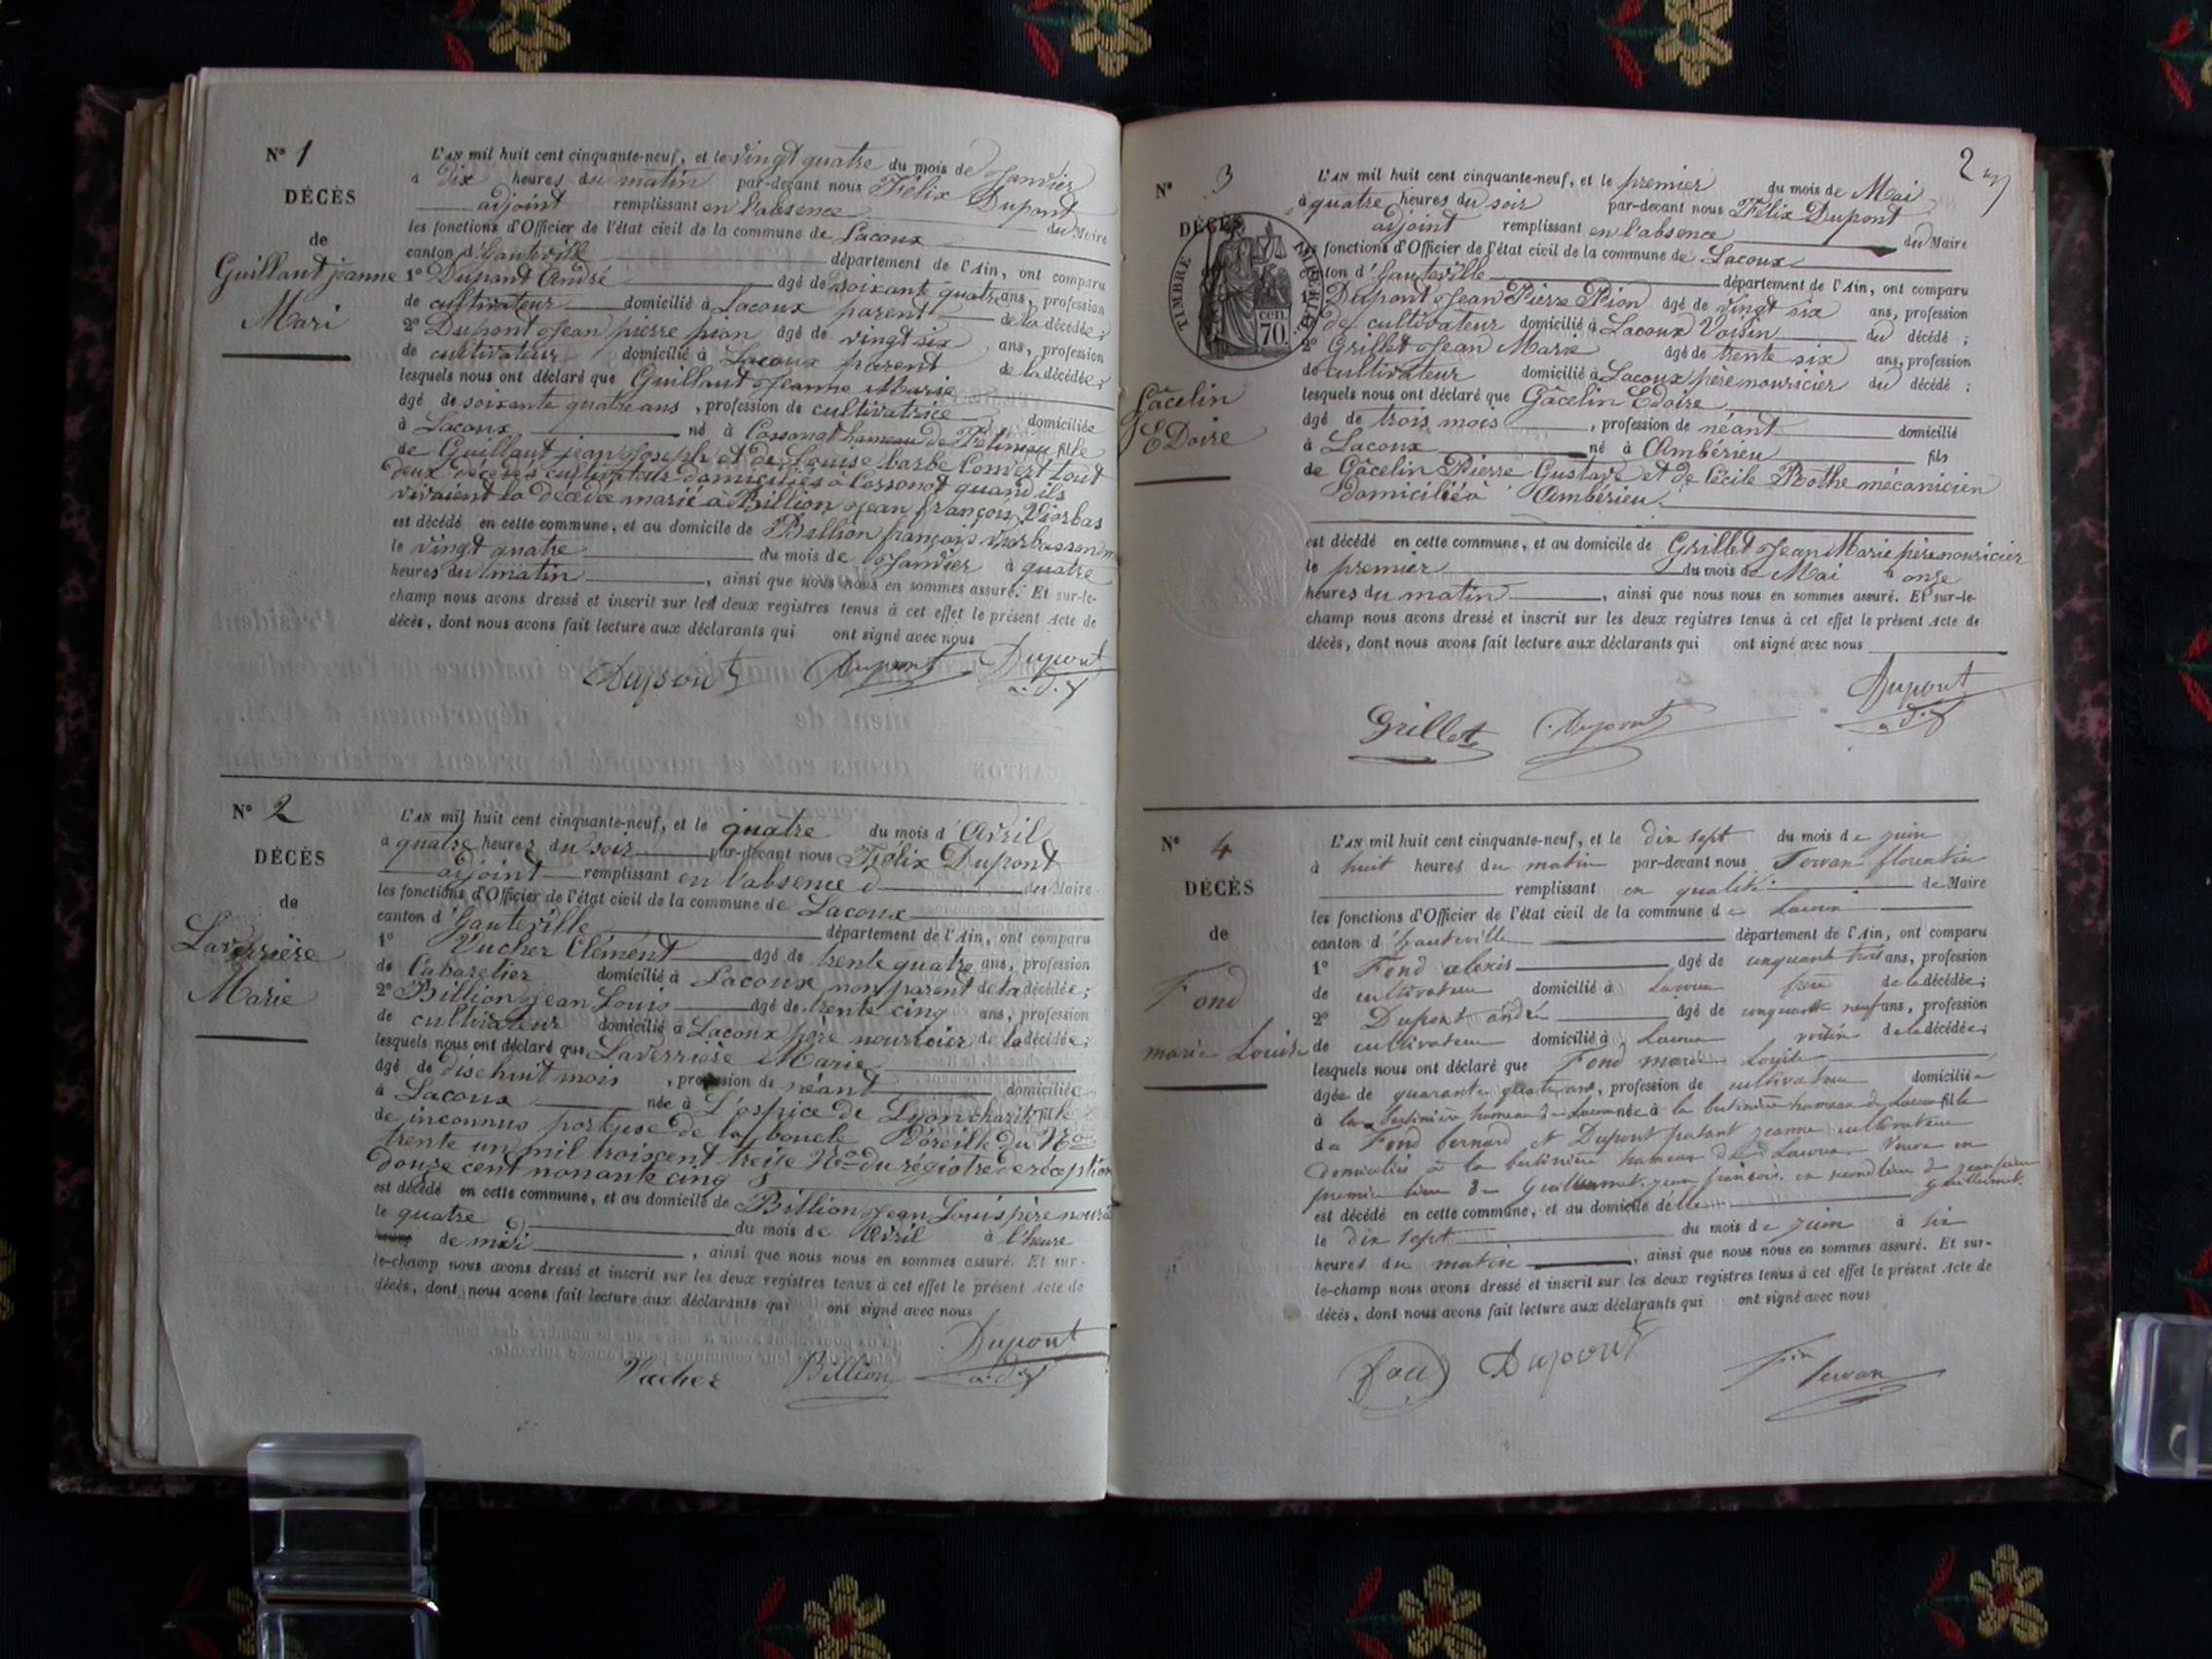 N° 1
DÉCÈS
de
Guillaud jeanne
Mari
L'AN mil huit cent cinquante-neuf, et le vingt quatre du mois de Janvier
à dix heures du matin par-devant nous Félix Dupont
adjoint remplissant en l'absence du Maire
les fonctions d'Officier de l'état civil de la commune de Lacoux
canton d'hauteville département de l'Ain, ont comparu
1° Dupond André agé de soixante quatre ans, profession
de cultivateur domicilié à Lacoux parent de la décédée;
2° Dupont Jean pierre pion agé de vingt six ans, profession
de cultivateur domicilié à Lacoux parent de la décédée;
lesquels nous ont déclaré que Guillaud Jeanne Marie
âgé de soixante quatre ans, profession de cultivatrice domiciliée
à Lacoux né à Corsonot hameau de fille
de Guillaut jean Joseph et de Louise barbe Convert tout
deux décédés cultivateur domiciliés à Corsonot quand ils
vivaient la décédée marié à Billion Jean françois
est décédé en cette commune, et au domicile de Billion françois
le vingt quatre du mois de Janvier à quatre
heures du matin, ainsi que nous nous en sommes assuré. Et sur-le-
champ nous avons dressé et inscrit sur les deux registres tenus à cet effet le présent Acte de
décès, dont nous avons fait lecture aux déclarants qui ont signé avec nous
Dupont Dupont Dupont
N° 2
DÉCÈS
de
Laverrière
Marie
L'AN mil huit cent cinquante-neuf, et le quatre du mois d'Avril
à quatre heures du soir par-devant nous Félix Dupont
adjoint remplissant en l'absence d du Maire
les fonctions d'Officier de l'état civil de la commune de Lacoux
canton d'hauteville département de l'Ain, ont comparu
1° Vucher Clément agé de trente quatre ans, profession
de Cabaretier domicilié à Lacoux non parent de la décédée;
2° Billion Jean Louis agé de trente cinq ans, profession
de cultivateur domicilié à Lacoux père nourricier de la décédée;
lesquels nous ont déclaré que Laverrière Marie
âgé de dise huit mois, profession de néant domiciliée
à Lacoux née à L'ospice de Lyon charité fille
de inconnus porteuse de la boucle d'oreille du N°
trente un mil troiscent treise N° du régistre de réception
douze cent nonante cinq
est décédé en cette commune, et au domicile de Billion Jean Louis père
le quatre du mois de Avril à l'heure
de midi, ainsi que nous nous en sommes assuré. Et sur-
le-champ nous avons dressé et inscrit sur les deux registres tenus à cet effet le présent Acte de
décès, dont nous avons fait lecture aux déclarants qui ont signé avec nous
Vucher Billion Dupont
2
N° 3
DÉCÈS
TIMBRE IMPÉRIAL
70 cen.
Gâcelin
EDoire
L'AN mil huit cent cinquante-neuf, et le premier du mois de Mai
à quatre heures du soir par-devant nous Félix Dupont
adjoint remplissant en l'absence du Maire
les fonctions d'Officier de l'état civil de la commune de Lacoux
canton d'hauteville département de l'Ain, ont comparu
1° Dupont Jean Pierre Pion agé de vingt six ans, profession
de cultivateur domicilié à Lacoux Voisin du décédé;
2° Grillet Jean Marie agé de trente six ans, profession
de cultivateur domicilié à Lacoux père nouricier du décédé;
lesquels nous ont déclaré que Gâcelin Edoire
âgé de trois mois, profession de néant domicilié
à Lacoux né à Ambérieu fils
de Gâcelin Pierre Gustave et de Cécile Bothe mécanicien
domicilié à Ambérieu.
est décédé en cette commune, et au domicile de Grillet Jean Marie père nouricier
le premier du mois de Mai à onze
heures du matin, ainsi que nous nous en sommes assuré. Et sur-le-
champ nous avons dressé et inscrit sur les deux registres tenus à cet effet le présent Acte de
décès, dont nous avons fait lecture aux déclarants qui ont signé avec nous
Grillet Dupont Dupont
N° 4
DÉCÈS
de
Fond
marie Louise
L'AN mil huit cent cinquante-neuf, et le dix sept du mois de juin
à huit heures du matin par-devant nous Servan florentin
remplissant en qualité de Maire
les fonctions d'Officier de l'état civil de la commune de Lacoux
canton d'hauteville département de l'Ain, ont comparu
1° Fond alexis agé de cinquante trois ans, profession
de cultivateur domicilié à Lacoux frère de la décédée;
2° Dupont andré agé de cinquante neuf ans, profession
de cultivateur domicilié à Lacoux voisin de la décédée;
lesquels nous ont déclaré que Fond marie Louise
âgée de quarante quatre ans, profession de cultivateur domiciliée
à la hameau de Lacoux née à la hameau de Lacoux fille
de Fond bernard et Dupont jeanne cultivateur
domiciliés à la hameau de Lacoux Veuve en
premier lieu de Guillermet jean françois en second lieu de jean
Guillermet.
est décédé en cette commune, et au domicile d'elle
le dix sept du mois de juin à six
heures du matin, ainsi que nous nous en sommes assuré. Et sur-
le-champ nous avons dressé et inscrit sur les deux registres tenus à cet effet le présent Acte de
décès, dont nous avons fait lecture aux déclarants qui ont signé avec nous
Dupont Servan